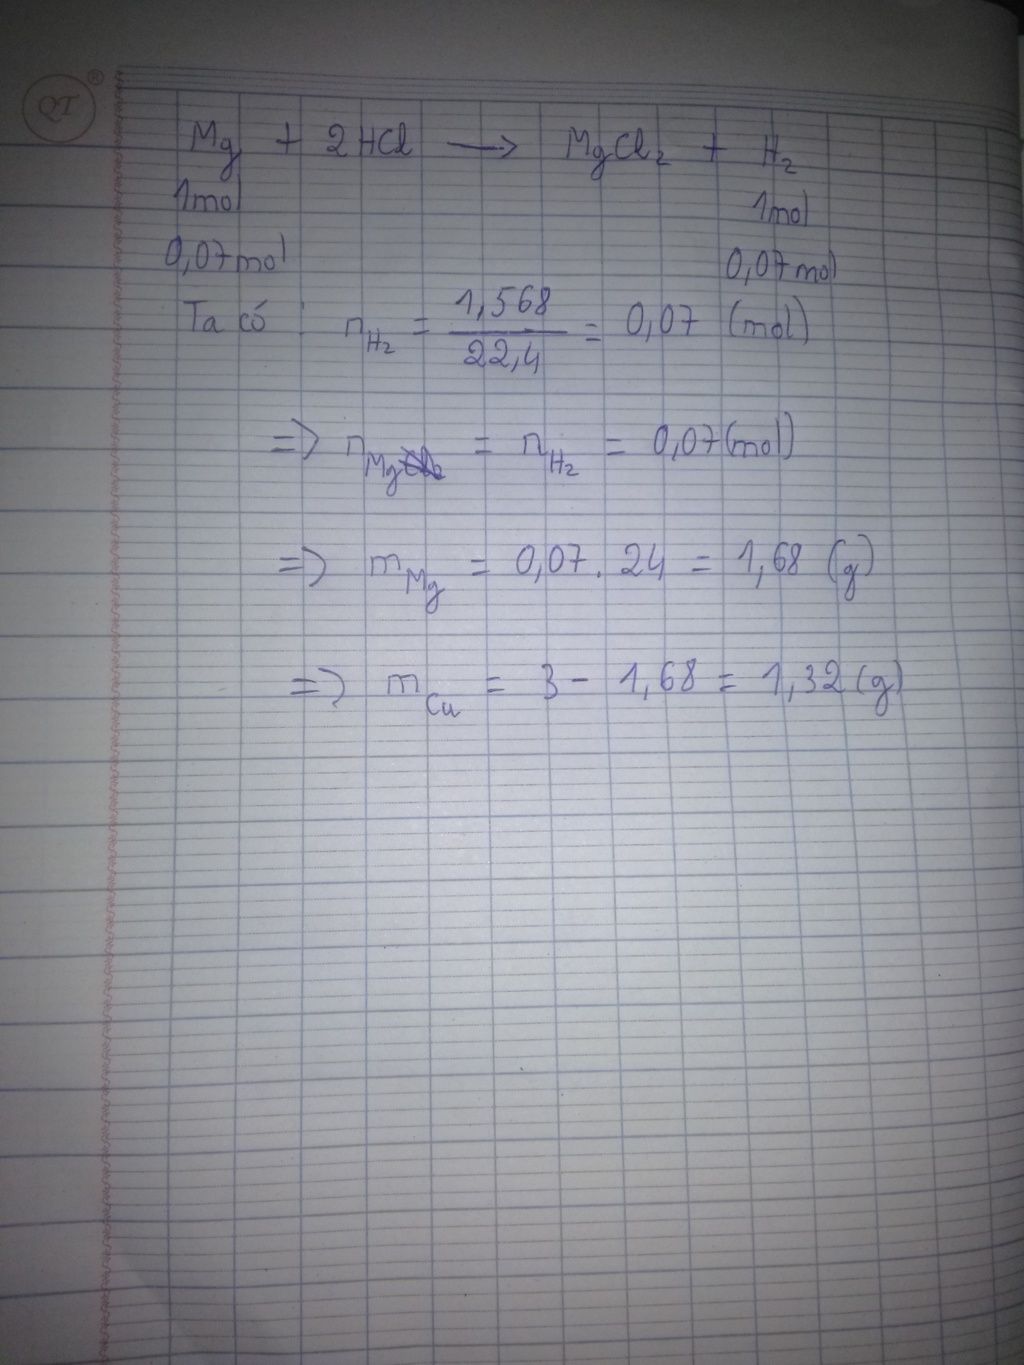 QT ®
Mg + 2HCl → MgCl₂ + H₂
1mol 1mol
0,07mol 0,07mol
Ta có : n_H₂ = 1,568 / 22,4 = 0,07 (mol)
=> n_Mg = n_H₂ = 0,07(mol)
=> m_Mg = 0,07 . 24 = 1,68 (g)
=> m_Cu = 3 - 1,68 = 1,32 (g)